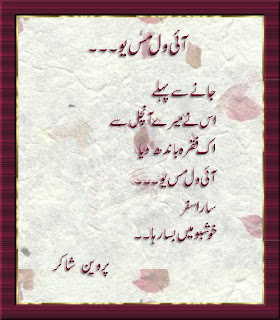 آئی ول مس یو۔۔۔
جانے سے پہلے
اس نے میرے آنچل سے
اک فقرہ باندھ دیا
آئی ول مس یو۔۔۔
سارا سفر
خوشبو میں بسا رہا۔۔
پروین شاکر